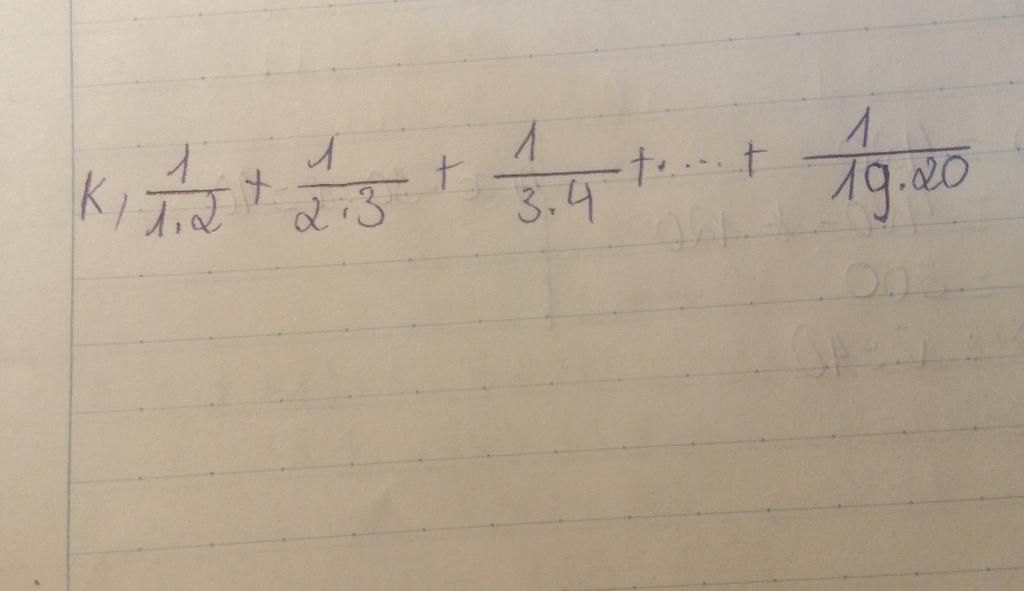 K, 1/1.2 + 1/2.3 + 1/3.4 +....+ 1/19.20